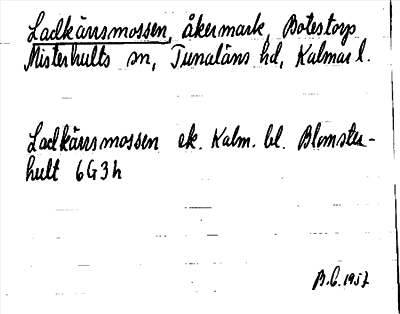 Ladkärrsmossen, åkermark, Botestorp
Misterhults sn, Tunaläns hd, Kalmar l.
Ladkärrsmossen ek. Kalm. bl. Blomster-
hult 6G3h
B.C. 1957